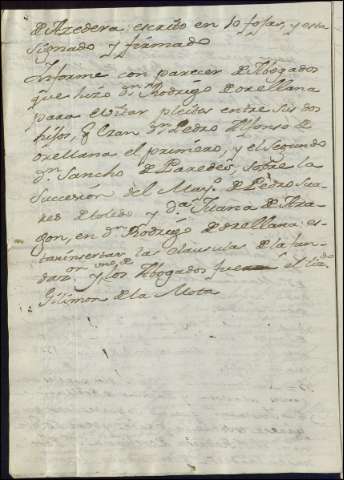 de Azedera; escrito en 10 fojas, y esta
signado y firmado
Informe con parecer de Abogados
que hizo Dn. Rodrigo de orellana
para evitar pleitos entre sus dos
hijos, q eran Dn. Pedro Alfonso de
orellana el primero, y el segundo
Dn. Sancho de Paredes, sobre la
Sucesion del May. de Pedro Sua
res de toledo y Da. Juana de Ara
gon, en Dn. Rodrigo de orellana: es
tan insertas las clausulas de la fun
dazon. y los Abogados fueron el lizdo
Gilimon de la Mota